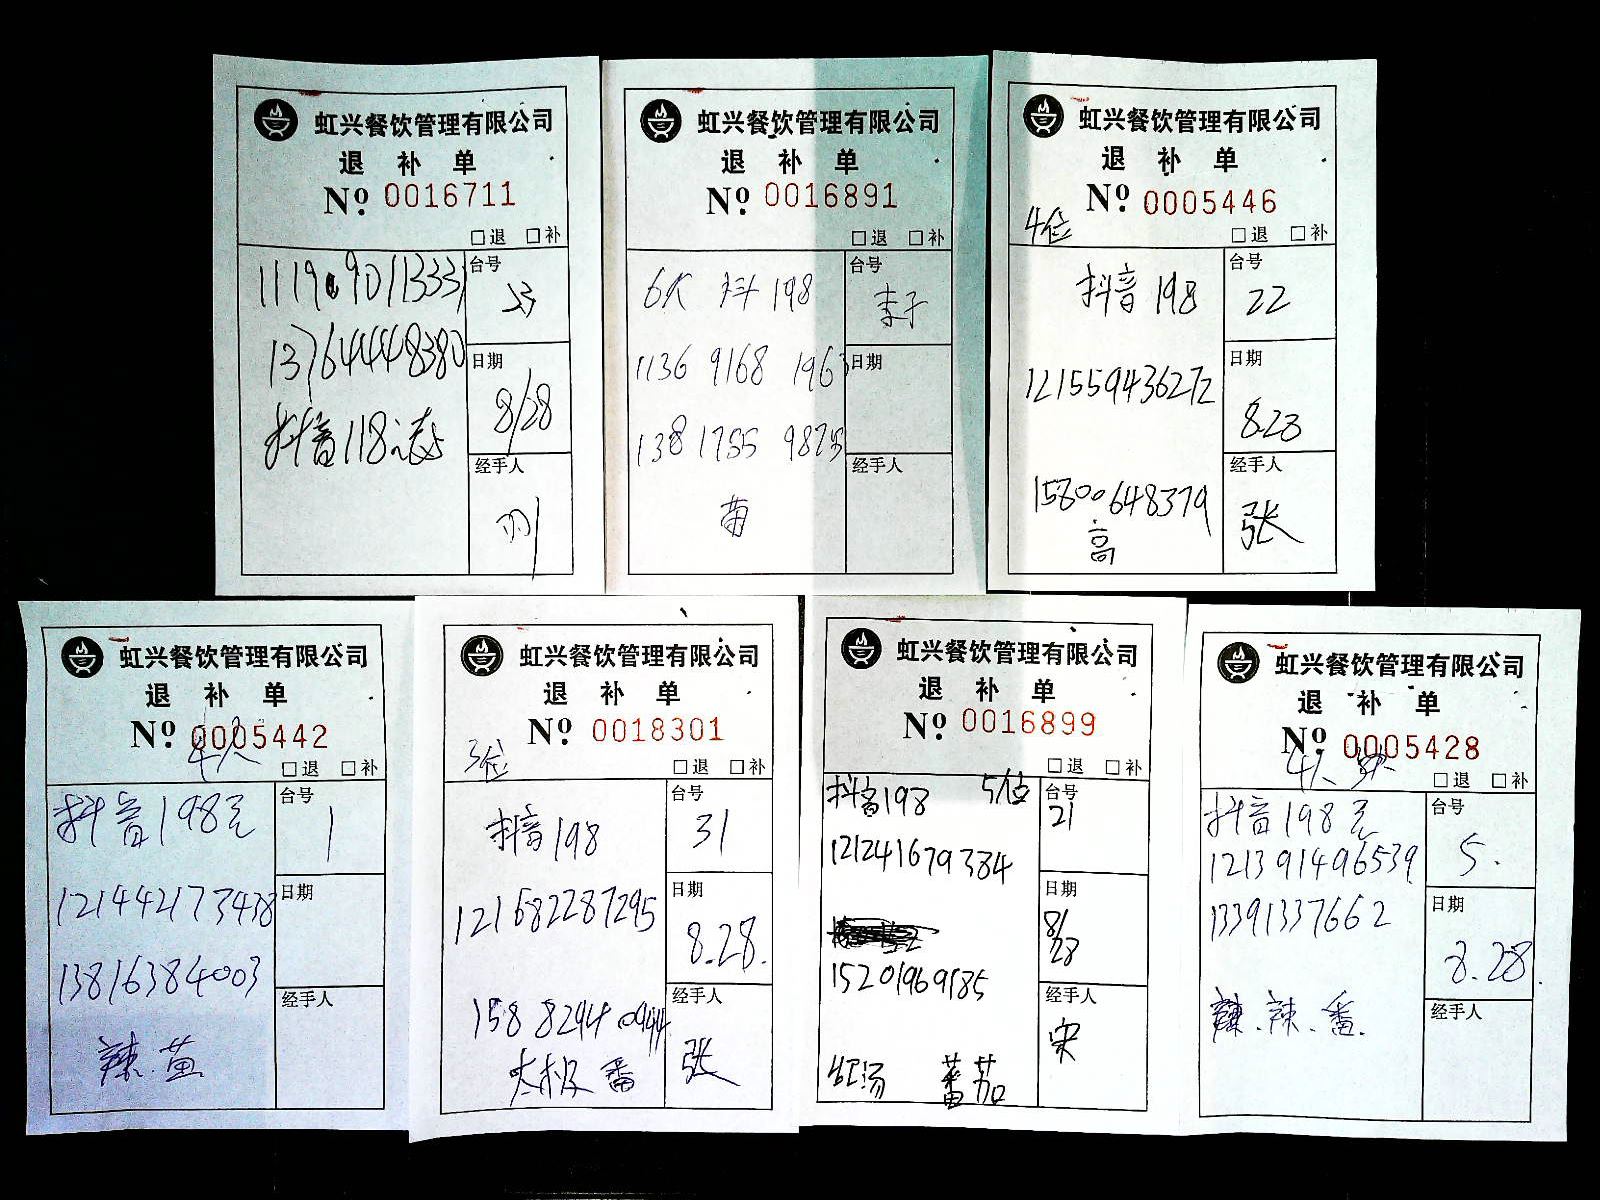 虹兴餐饮管理有限公司
退 补 单
Nº 0016711
□退 □补
台号
日期
8/28
经手人
13764448380
抖音118
虹兴餐饮管理有限公司
退 补 单
Nº 0016891
□退 □补
6人 抖198
1136 9168 1963
138 1755 9875
黄
台号
李子
日期
经手人
虹兴餐饮管理有限公司
退 补 单
Nº 0005446
4位
□退 □补
抖音198
121559436272
15800648379
高
台号
22
日期
8.28
经手人
张
虹兴餐饮管理有限公司
退 补 单
Nº 0005442
4人
□退 □补
抖音198元
121442173438
13816384003
辣.黄
台号
1
日期
经手人
虹兴餐饮管理有限公司
退 补 单
Nº 0018301
3位
□退 □补
抖音198
121682287295
158 8294 0944
太极 番
台号
31
日期
8.28.
经手人
张
虹兴餐饮管理有限公司
退 补 单
Nº 0016899
□退 □补
抖音198 5位
121241679384
15201969185
红汤 蕃茄
台号
21
日期
8/28
经手人
宋
虹兴餐饮管理有限公司
退 补 单
Nº 0005428
4人
□退 □补
抖音198元
121391496539
13391337662
辣.辣.番.
台号
5.
日期
8.28.
经手人